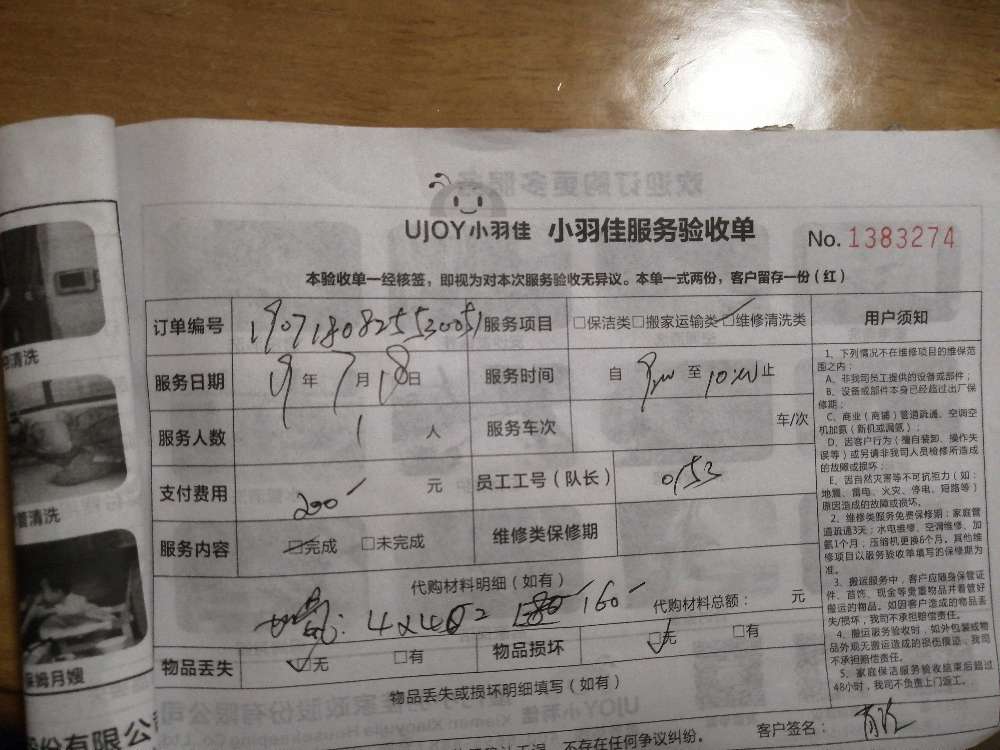 UJOY小羽佳 小羽佳服务验收单 No. 1383274
本验收单一经核签，即视为对本次服务验收无异议。本单一式两份，客户留存一份（红）
订单编号 服务项目 □保洁类□搬家运输类□维修清洗类 用户须知
服务日期 19年7月18日 服务时间 自 至 10:00 止
服务人数 1 人 服务车次 车/次
支付费用 200 元 员工工号（队长） 0153
服务内容 □完成 □未完成 维修类保修期
代购材料明细（如有）
4×40 160 代购材料总额： 元
物品丢失 □无 □有 物品损坏 □无 □有
物品丢失或损坏明细填写（如有）
客户签名：
不存在任何争议纠纷。
1、下列情况不在维修项目的维保范
围之内：
A、非我司员工提供的设备或部件；
B、设备或部件本身已经超过出厂保
修期；
C、商业（商铺）管道疏通、空调空
机加氨（新机或漏氨）；
D、因客户行为（擅自装卸、操作失
误等）或另请非我司人员检修所造成
的故障或损坏；
E、因自然灾害等不可抗拒力（如：
地震、雷电、火灾、停电、短路等）
原因造成的故障或损坏。
2、维修类服务免费保修期：家庭管
道疏通3天；水电维修、空调维修、加
氨1个月；压缩机更换6个月。其他维
修项目以服务验收单填写的保修期为
准。
3、搬运服务中，客户应随身保管证
件、首饰、现金等贵重物品并看管好
搬运的物品。如因客户造成的物品丢
失/损坏，我司不承担赔偿责任。
4、搬运服务验收时，如外包装或物
品外观无搬运造成的损伤痕迹，我司
不承担赔偿责任。
5、家庭保洁服务验收结束后超过
48小时，我司不负责上门返工。
清洗
管清洗
保姆月嫂
股份有限公